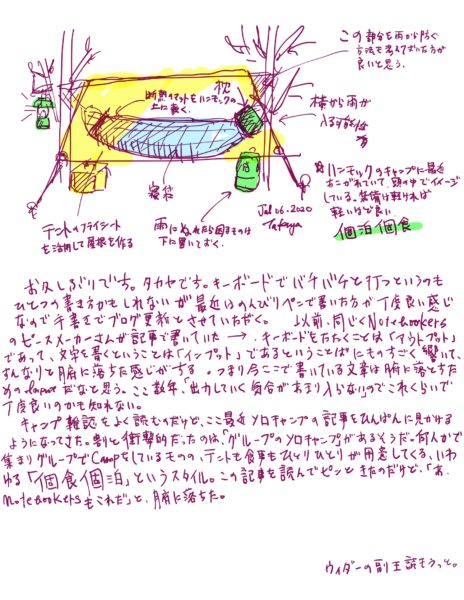 この部分を雨から防ぐ
方法も考えておいた方が
良いと思う。
枕
断熱マットをハンモックの
上に敷く。
横から雨が
入る可能性
有
寝袋
テントのフライシート
を活用して屋根を作る
雨にぬれたら困るものは
下に置いておく。
Jan 06. 2020
Takaya
ハンモックのキャンプに最近
あこがれていて、頭の中でイメージ
している。装備は軽ければ
軽いほど良い
個泊個食
お久しぶりです。タカヤです。キーボードでバチバチと打つというのも
ひとつの書き方かもしれないが最近はのんびりペンで書いた方が丁度良い感じ
なので手書きでブログ更新とさせていただく。 以前、同じくNotehookers
のピースメーカーさんが記事で書いていた → キーボードをたたくことは「アウトプット」
であって、文字を書くということは「インプット」であるということばにものすごく響いて、
すんなりと腑に落ちた感じがする。つまり今ここで書いている文章は腑に落とすた
めのInputだなと思う。ここ数年、「出力していく気合があまり入らない」のでこれくらいで
丁度良いのかも知れない。
キャンプ雑誌をよく読むのだけど、ここ最近ソロキャンプの記事をひんぱんに見かける
ようになってきた。割と衝撃的だったのは、「グループのソロキャンプがあるそうだ。何人かで
集まりグループでCampをしているものの、テントも食事もひとりひとりが用意してくる、いわ
ゆる「個食個泊」というスタイル。この記事を読んでピンときたのだけど、「あ、
Notehookersもこれだ」と、腑に落ちた。
ウィダーの副王読もうっと。